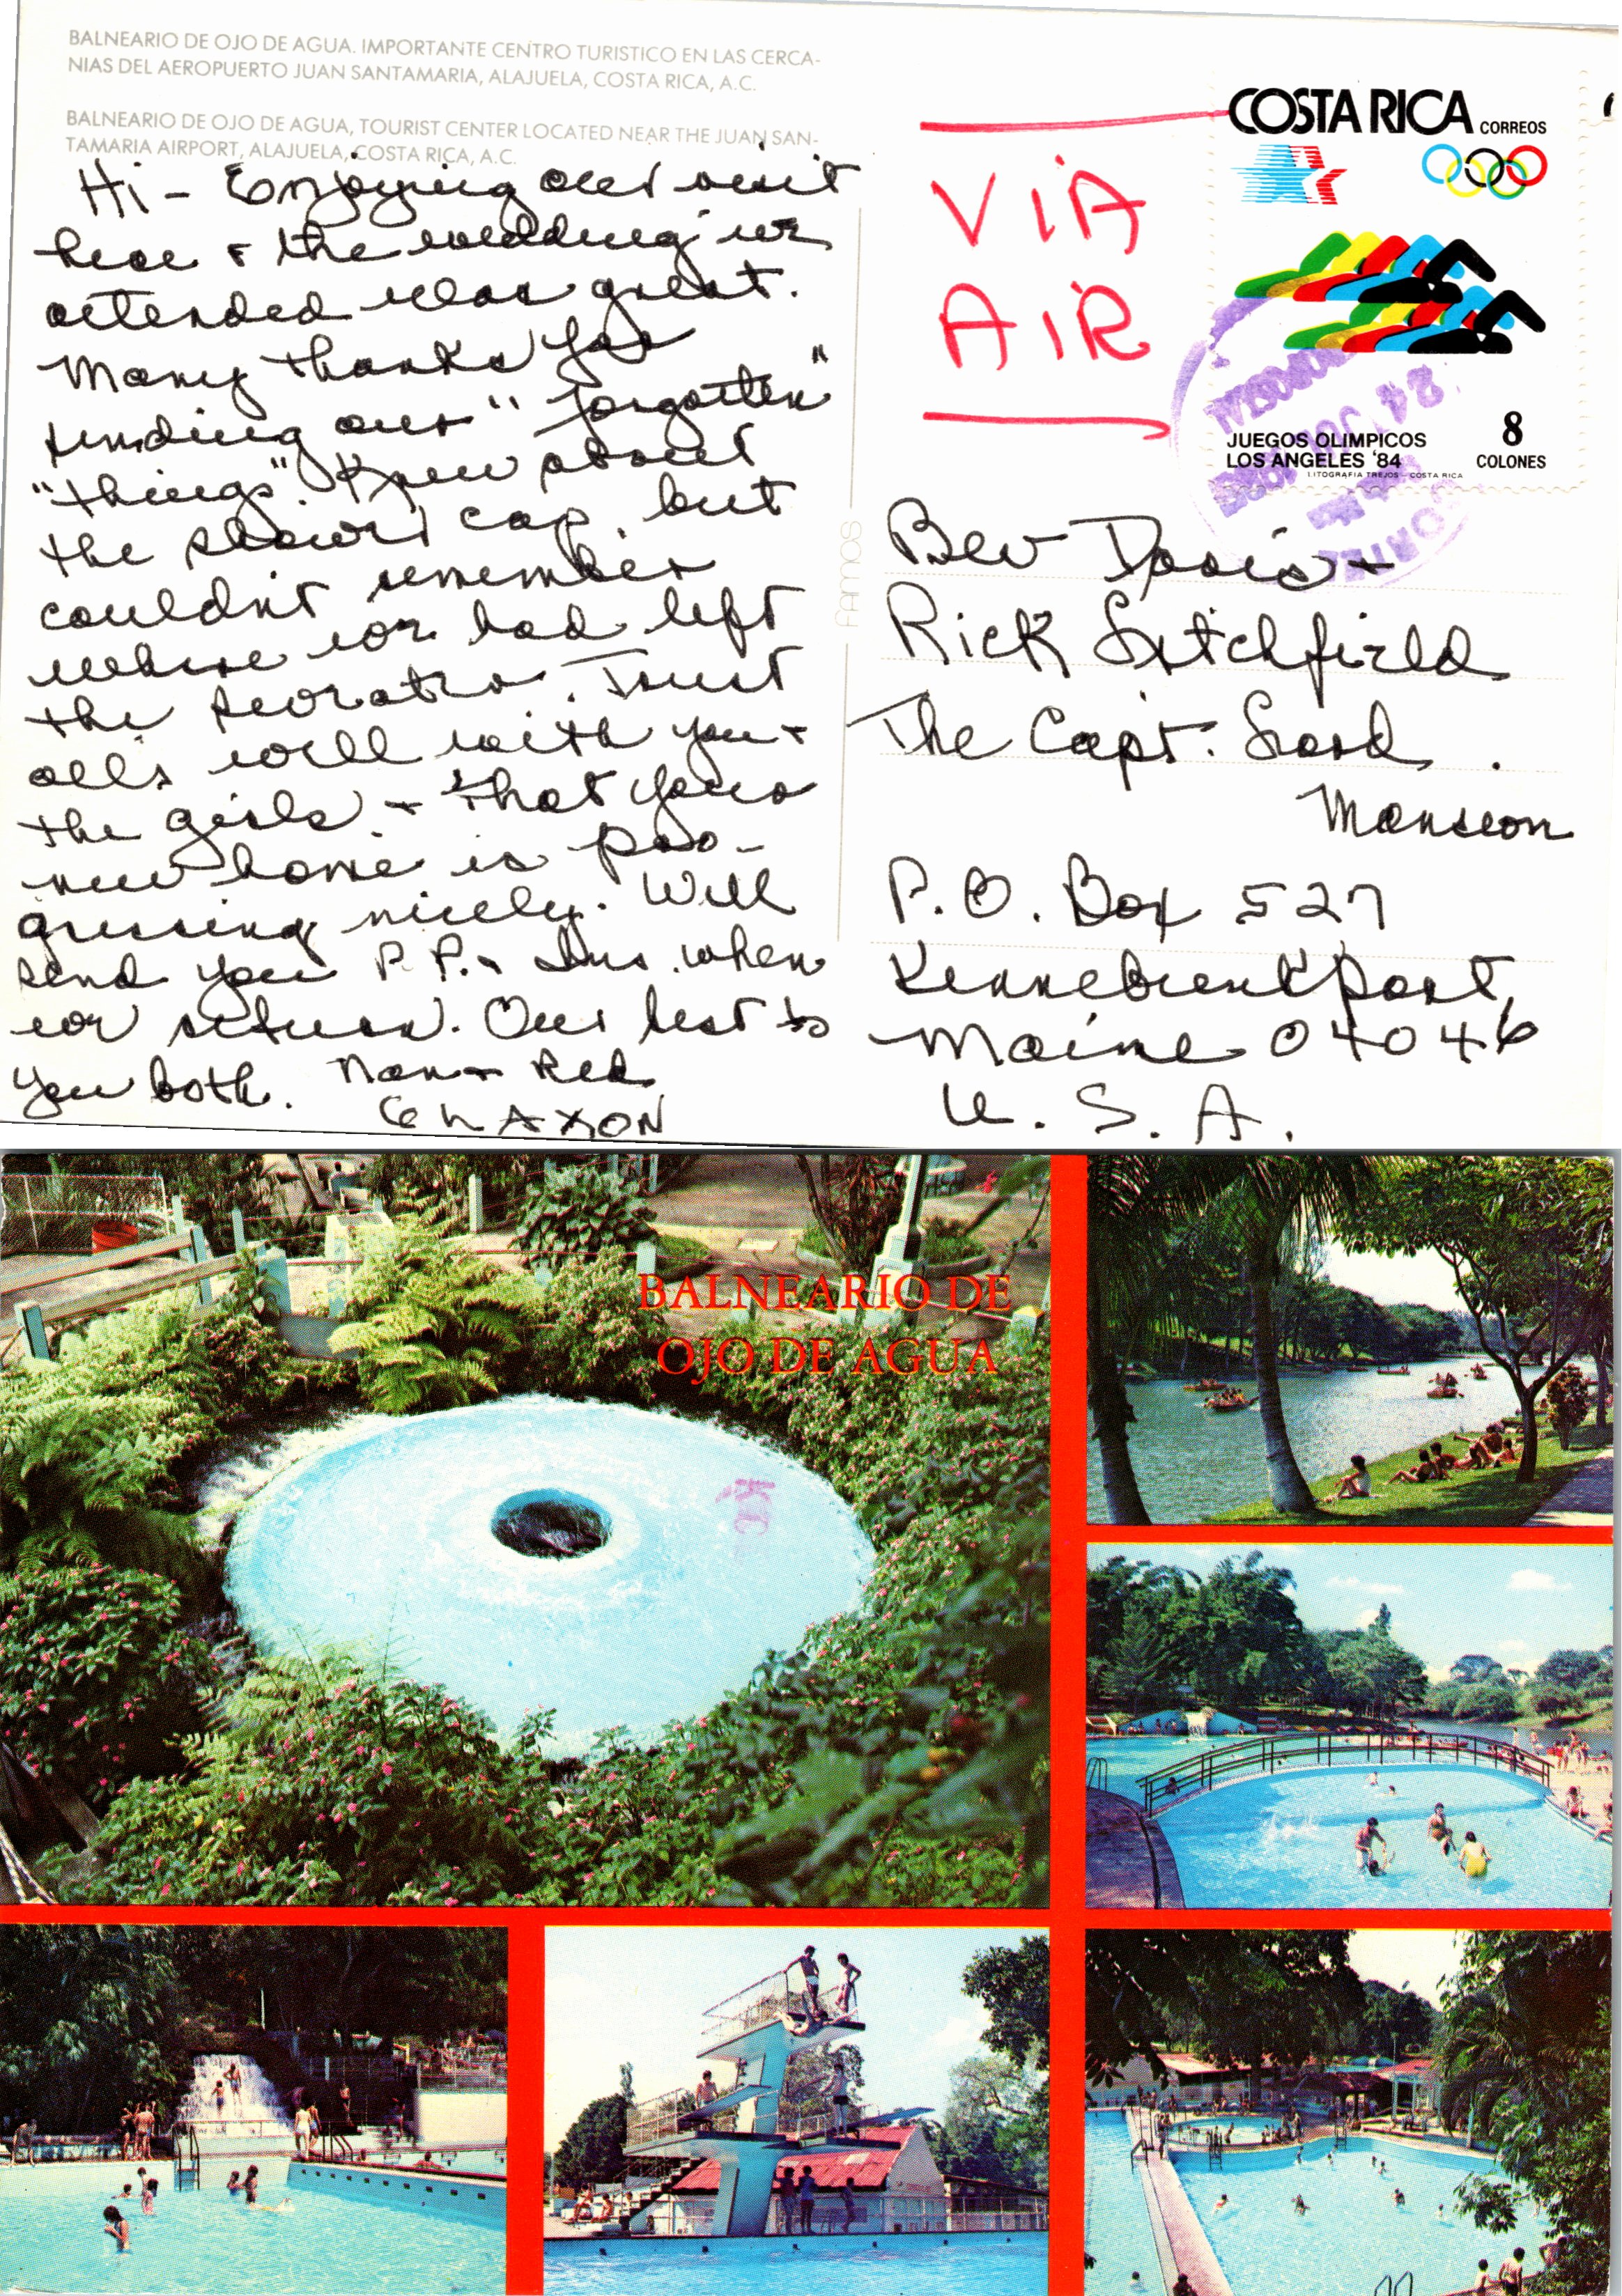 BALNEARIO DE OJO DE AGUA. IMPORTANTE CENTRO TURISTICO EN LAS CERCA-
NIAS DEL AEROPUERTO JUAN SANTAMARIA, ALAJUELA, COSTA RICA, A.C.
BALNEARIO DE OJO DE AGUA, TOURIST CENTER LOCATED NEAR THE JUAN SAN-
TAMARIA AIRPORT, ALAJUELA, COSTA RICA, A.C.
Hi - Enjoying our visit
here + the wedding we
attended was great.
Many thanks for
sending our "forgotten"
"things". Knew about
the shower cap, but
couldn't remember
where we had left
the
all's well with you +
the girls + that your
new home is pro-
gressing nicely. Will
send you P.P. + Ins. when
we return. Our best to
you both. Nan + Red
CLAXON
FAMOS
VIA
AIR
COSTA RICA CORREOS
JUEGOS OLIMPICOS
LOS ANGELES '84
8
COLONES
LITOGRAFIA TREJOS - COSTA RICA
Bev Davis +
Rick Litchfield
The Capt. Lord
Mansion
P.O. Box 527
Kennebunkport,
Maine 04046
U.S.A.
BALNEARIO DE
OJO DE AGUA